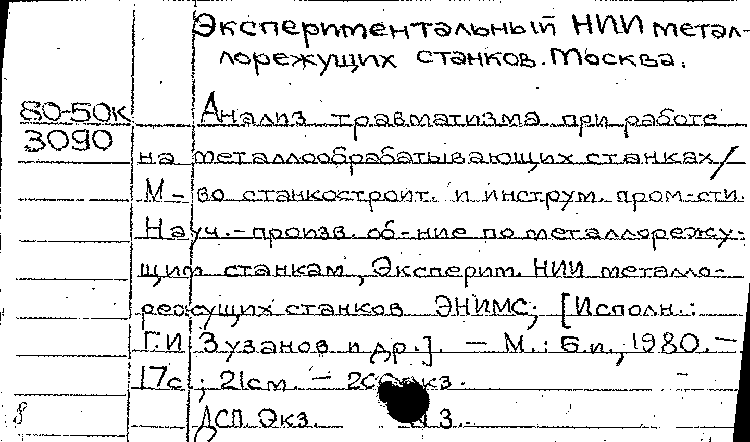 Экспериментальный НИИ метал-
лорежущих станков. Москва.
80-50к
3090
Анализ травматизма при работе
на металлообрабатывающих станках/
М-во станкостроит. и инструм. пром-сти.
Науч.-произв. об-ние по металлорежу-
щим станкам, Эксперим. НИИ металло-
режущих станков ЭНИМС; [Исполн.:
Г.И Зузанов и др.]. — М.: Б.и., 1980. —
17с.; 21см. — экз.
8
ДСП. Экз. 3.